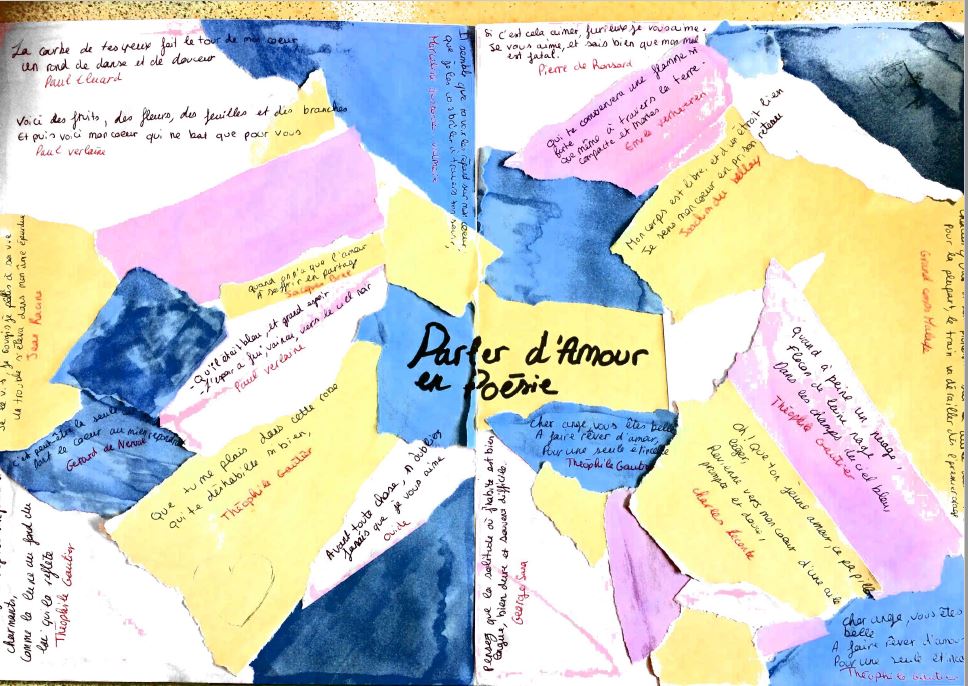 La courbe de tes yeux fait le tour de mon coeur
Un rond de danse et de douceur
Paul Eluard
Voici des fruits, des fleurs, des feuilles et des branches
Et puis voici mon coeur qui ne bat que pour vous
Paul Verlaine
Si c'est cela aimer, furieux je vous aime.
Je vous aime, et sais bien que mon mal
est fatal.
Pierre de Ronsard
Qui te conservera une flamme si
forte
que même à travers la terre
compacte et mortes
Emile Verhaeren
Mon corps est libre, et d'un étroit lien
Je sens mon coeur en prison retenu
Joachim du Bellay
Quand on n'a que l'amour
A s'offrir en partage
Jacques Brel
- Qu'il était bleu, le ciel, et grand l'espoir
- L'espoir a fui, vaincu, vers le ciel noir
Paul Verlaine
Jean Racine
un trouble s'éleva dans mon âme éperdue
Parler d'Amour
en Poésie
C'est peut-être la seule
dont le coeur au mien
Gérard de Nerval
Que tu me plais dans cette robe
qui te déshabille si bien,
Théophile Gautier
Avant toute chose, n'oublies
jamais que je vous aime
Ovide
charmants,
Comme la lune au fond du
lac qui la reflète
Théophile Gautier
Cher ange, vous êtes belle
A faire rêver d'amour,
Pour une seule étincelle
Théophile Gautier
Pensez que la solitude où j'habite est bien
longue, bien dure et souvent difficile.
George Sand
Quand à peine un nuage,
Flocon de laine, nage
Dans les champs du ciel bleu
Théophile Gautier
Oh! Que ton jeune amour, ce papillon
léger,
Revienne vers mon coeur d'une aile
prompte et douce,
Grand Corps Malade
Pour la plupart, le train va dérailler dès le premier orage
Cher ange, vous êtes
belle
A faire rêver d'amour
Pour une seule étincelle
Théophile Gautier